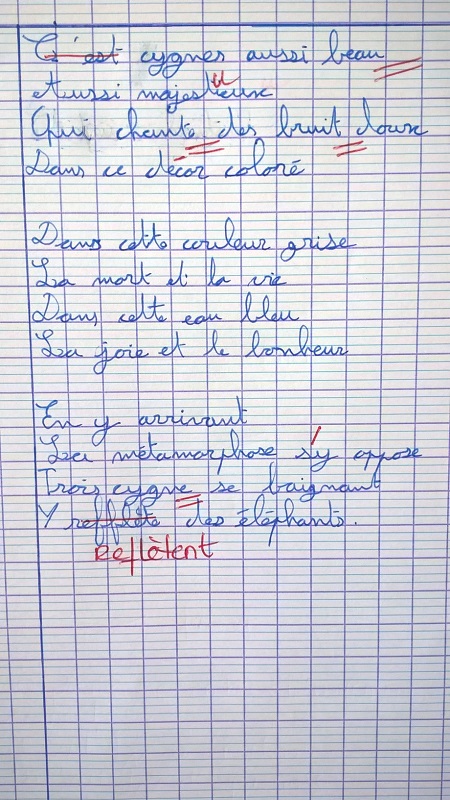 C'est cygnes aussi beau
Aussi majestueux
Qui chante des bruit doux
Dans ce décor coloré
Dans cette couleur grise
La mort et la vie
Dans cette eau bleu
La joie et le bonheur
En y arrivant
La métamorphose s'y oppose
Trois cygne se baignant
Y refflète des éléphants.
Reflètent